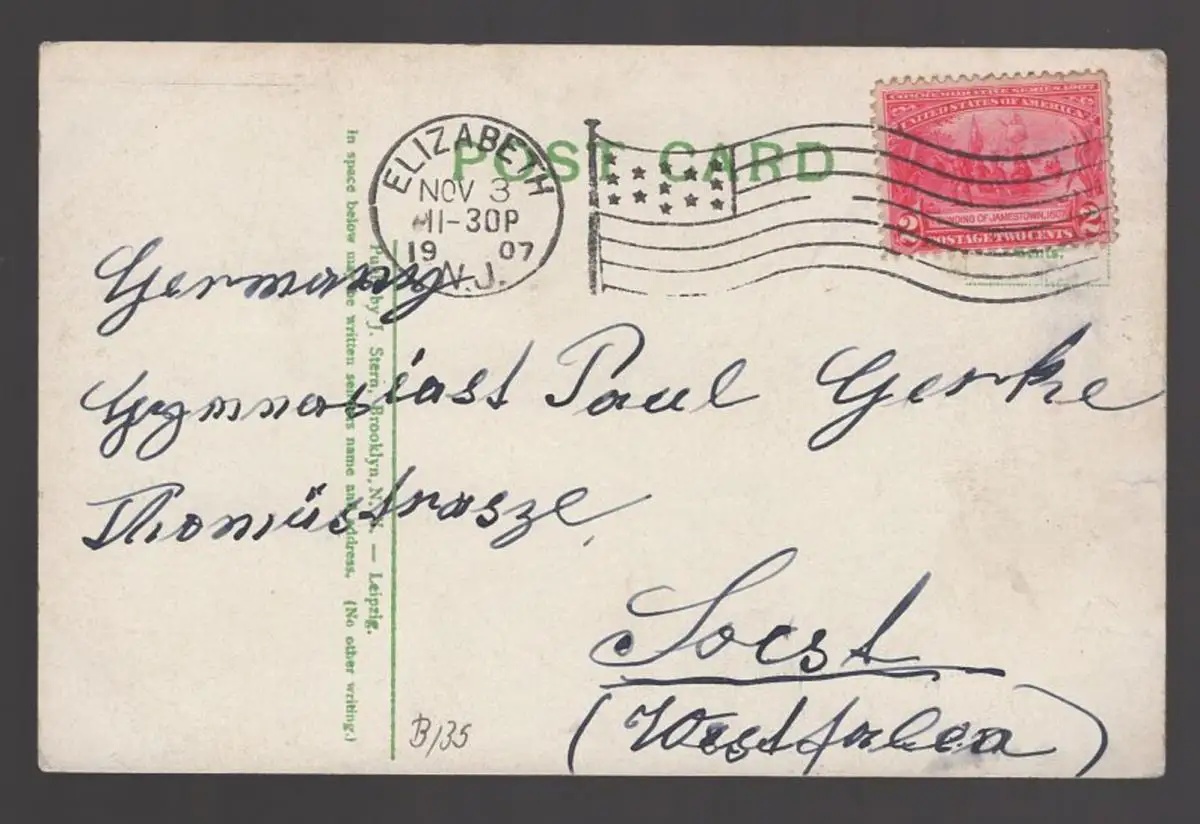 POST CARD
ELIZABETH
NOV 3
11-30P
19 07
N.J.
COMMEMORATIVE SERIES 1907
UNITED STATES OF AMERICA
OF JAMESTOWN, 1607
2 POSTAGE TWO CENTS 2
Germany
Gymnasiast Paul Gerke
Thomästrasze
Soest
(Westfalen)
B/35
Publ. by J. Stern, Brooklyn, N.Y. — Leipzig.
In space below may be written senders name and address. (No other writing.)